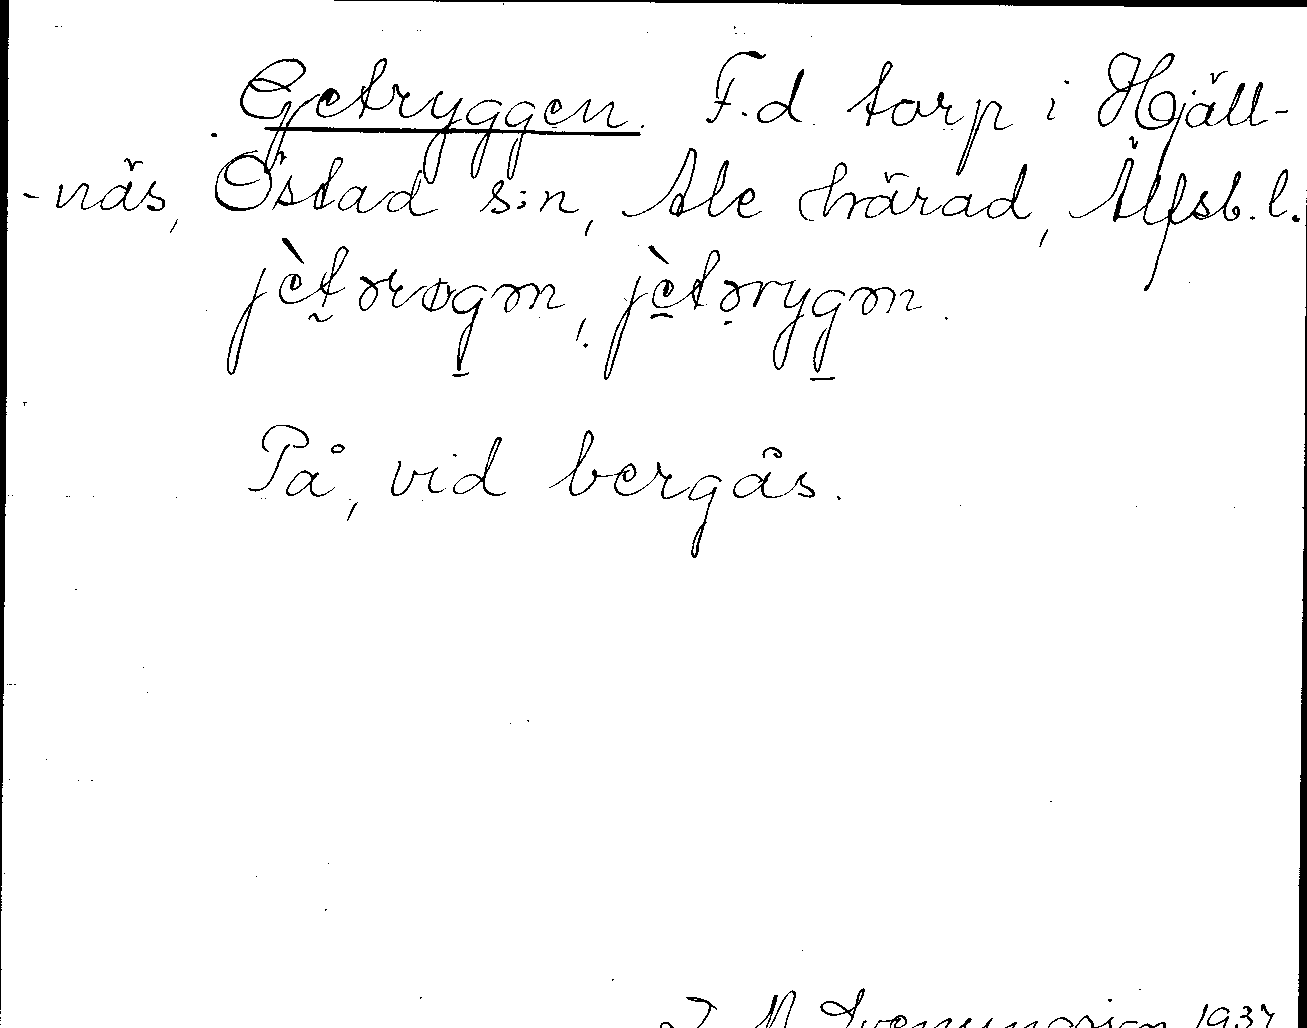 Getryggen. F.d. torp i Hjäll-
-näs, Östad s:n, Ale härad, Älfsb. l.
jètərøgən, jètərygən.
På, vid bergås.
1937